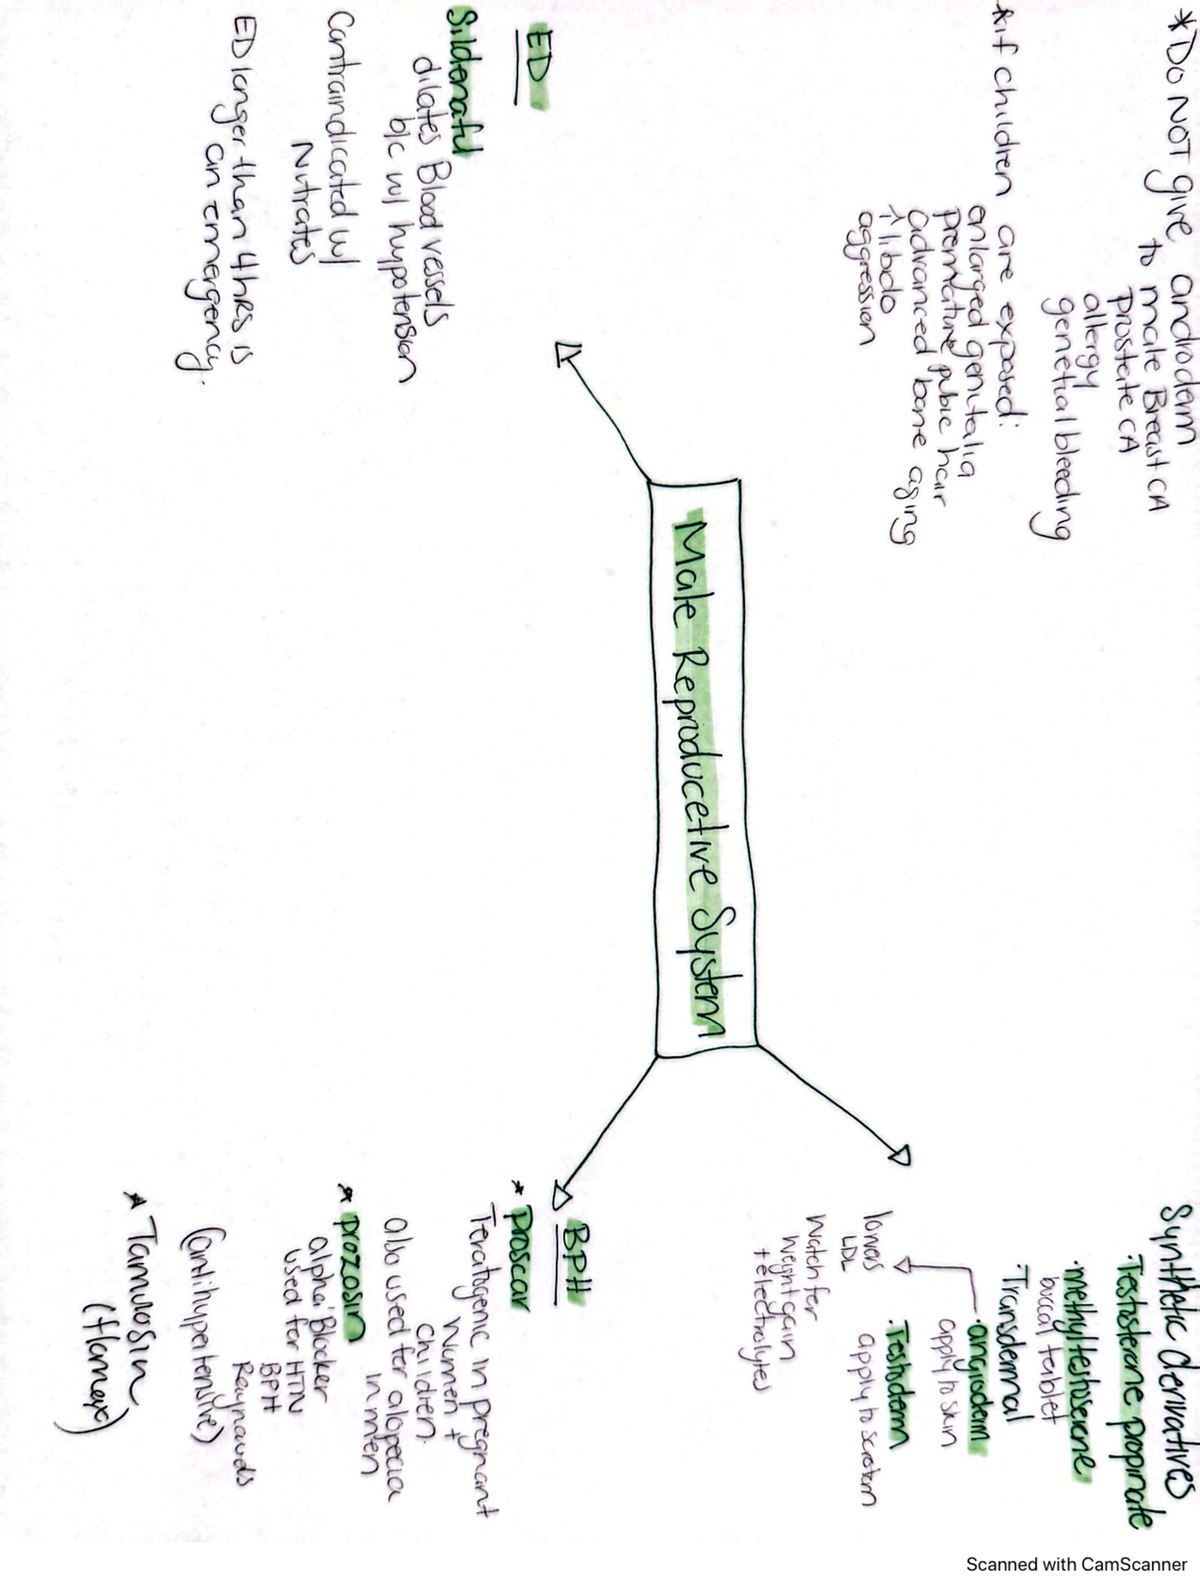 *DO NOT give androderm
to male Breast CA
prostate CA
allergy
genetial bleeding
*if children are exposed:
enlarged genitalia
premature pubic hair
advanced bone aging
↑ libido
aggression
Synthetic derivatives
·Testosterone propinate
·methyltestoserne
buccal tablet
·Transdermal
·angioderm
apply to skin
·Testoderm
apply to scrotom
lowers
LDL
Watch for
weight gain
+ electrolytes
Male Reproducetive System
ED
Sildenafil
dilates Blood vessels
b/c w/ hypotension
Contraindicated w/
Nutrates
ED longer than 4 hrs is
an emergency.
BPH
* Proscar
Teratogenic in pregnant
Women +
Children.
also used for alopecia
in men
* prozosin
alpha Blocker
used for HTN
BPH
Raynauds
(antihypertensive)
* Tamulosin
(flomax)
Scanned with CamScanner